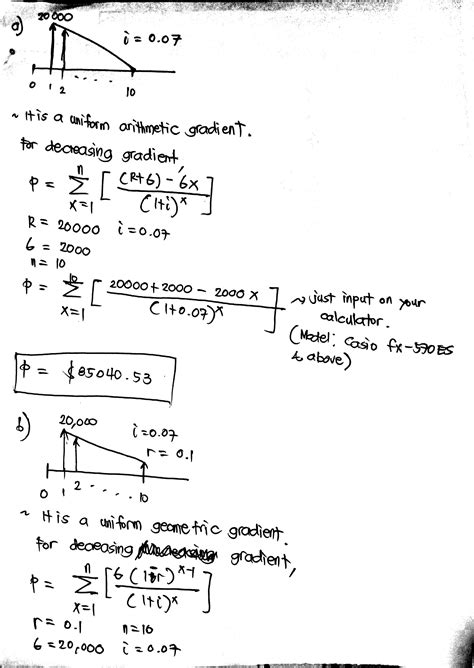 a)
20 000
i = 0.07
0 1 2 .... 10
~ It is a uniform arithmetic gradient.
For decreasing gradient,
P = n Σ x=1 [ (R+G) - Gx / (1+i)^x ]
R = 20000 i = 0.07
G = 2000
n = 10
P = 10 Σ x=1 [ 20000 + 2000 - 2000 x / (1+0.07)^x ] → just input on your
calculator.
(Model: Casio fx-570ES
& above)
P = $85040.53
b)
20,000
i = 0.07
r = 0.1
0 1 2 .... 10
~ It is a uniform geometric gradient.
For deceasing gradient,
P = n Σ x=1 [ G (1-r)^x-1 / (1+i)^x ]
r = 0.1 n=10
G = 20,000 i = 0.07